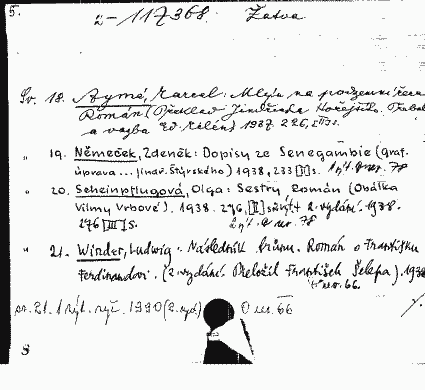 5.
2-117368. Žatva
Sv. 18. Aymé, Marcel: Mlýn na podzemní řece
Román (Překlad Jindřicha Hořejšího. Obálka
a vazba Ed. Milén) 1937. 226, III s.
" 19. Němeček, Zdeněk: Dopisy ze Senegambie (graf.
úprava ... Jindř. Štyrského) 1938, 233 [I] s.
" 20. Scheinpflugová, Olga: Sestry Román (Obálka
Vilmy Vrbové). 1938. 276, [II] s. + 2. vydání. 1938.
276 [III] s.
" 21. Winder, Ludwig: Následník trůnu. Román o Františku
Ferdinandovi. (2. vydání. Přeložil František Šelepa). 1938
sv. 21. 1 výt. vyř. 1990 (2. vyd)
8